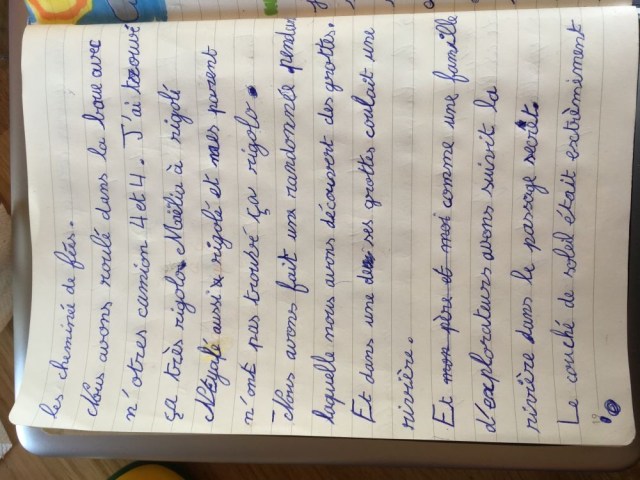 les cheminée de fées.
Nous avons roulé dans la boue avec
n'otres camion 4 et 4. J'ai trouvé
ça très rigolo. Maëlia à rigolé
aussi a rigolé et mes parent
n'ont pas trouvé ça rigolo.
Nous avons fait une randonnée pendan
laquelle nous avons découvert des grottes.
Et dans une de ses grottes coulait une
rivière.
Et mon père et moi comme une famille
d'explorateurs avons suivit la
rivière dans le passage secret.
Le couché de soleil était extrêmement